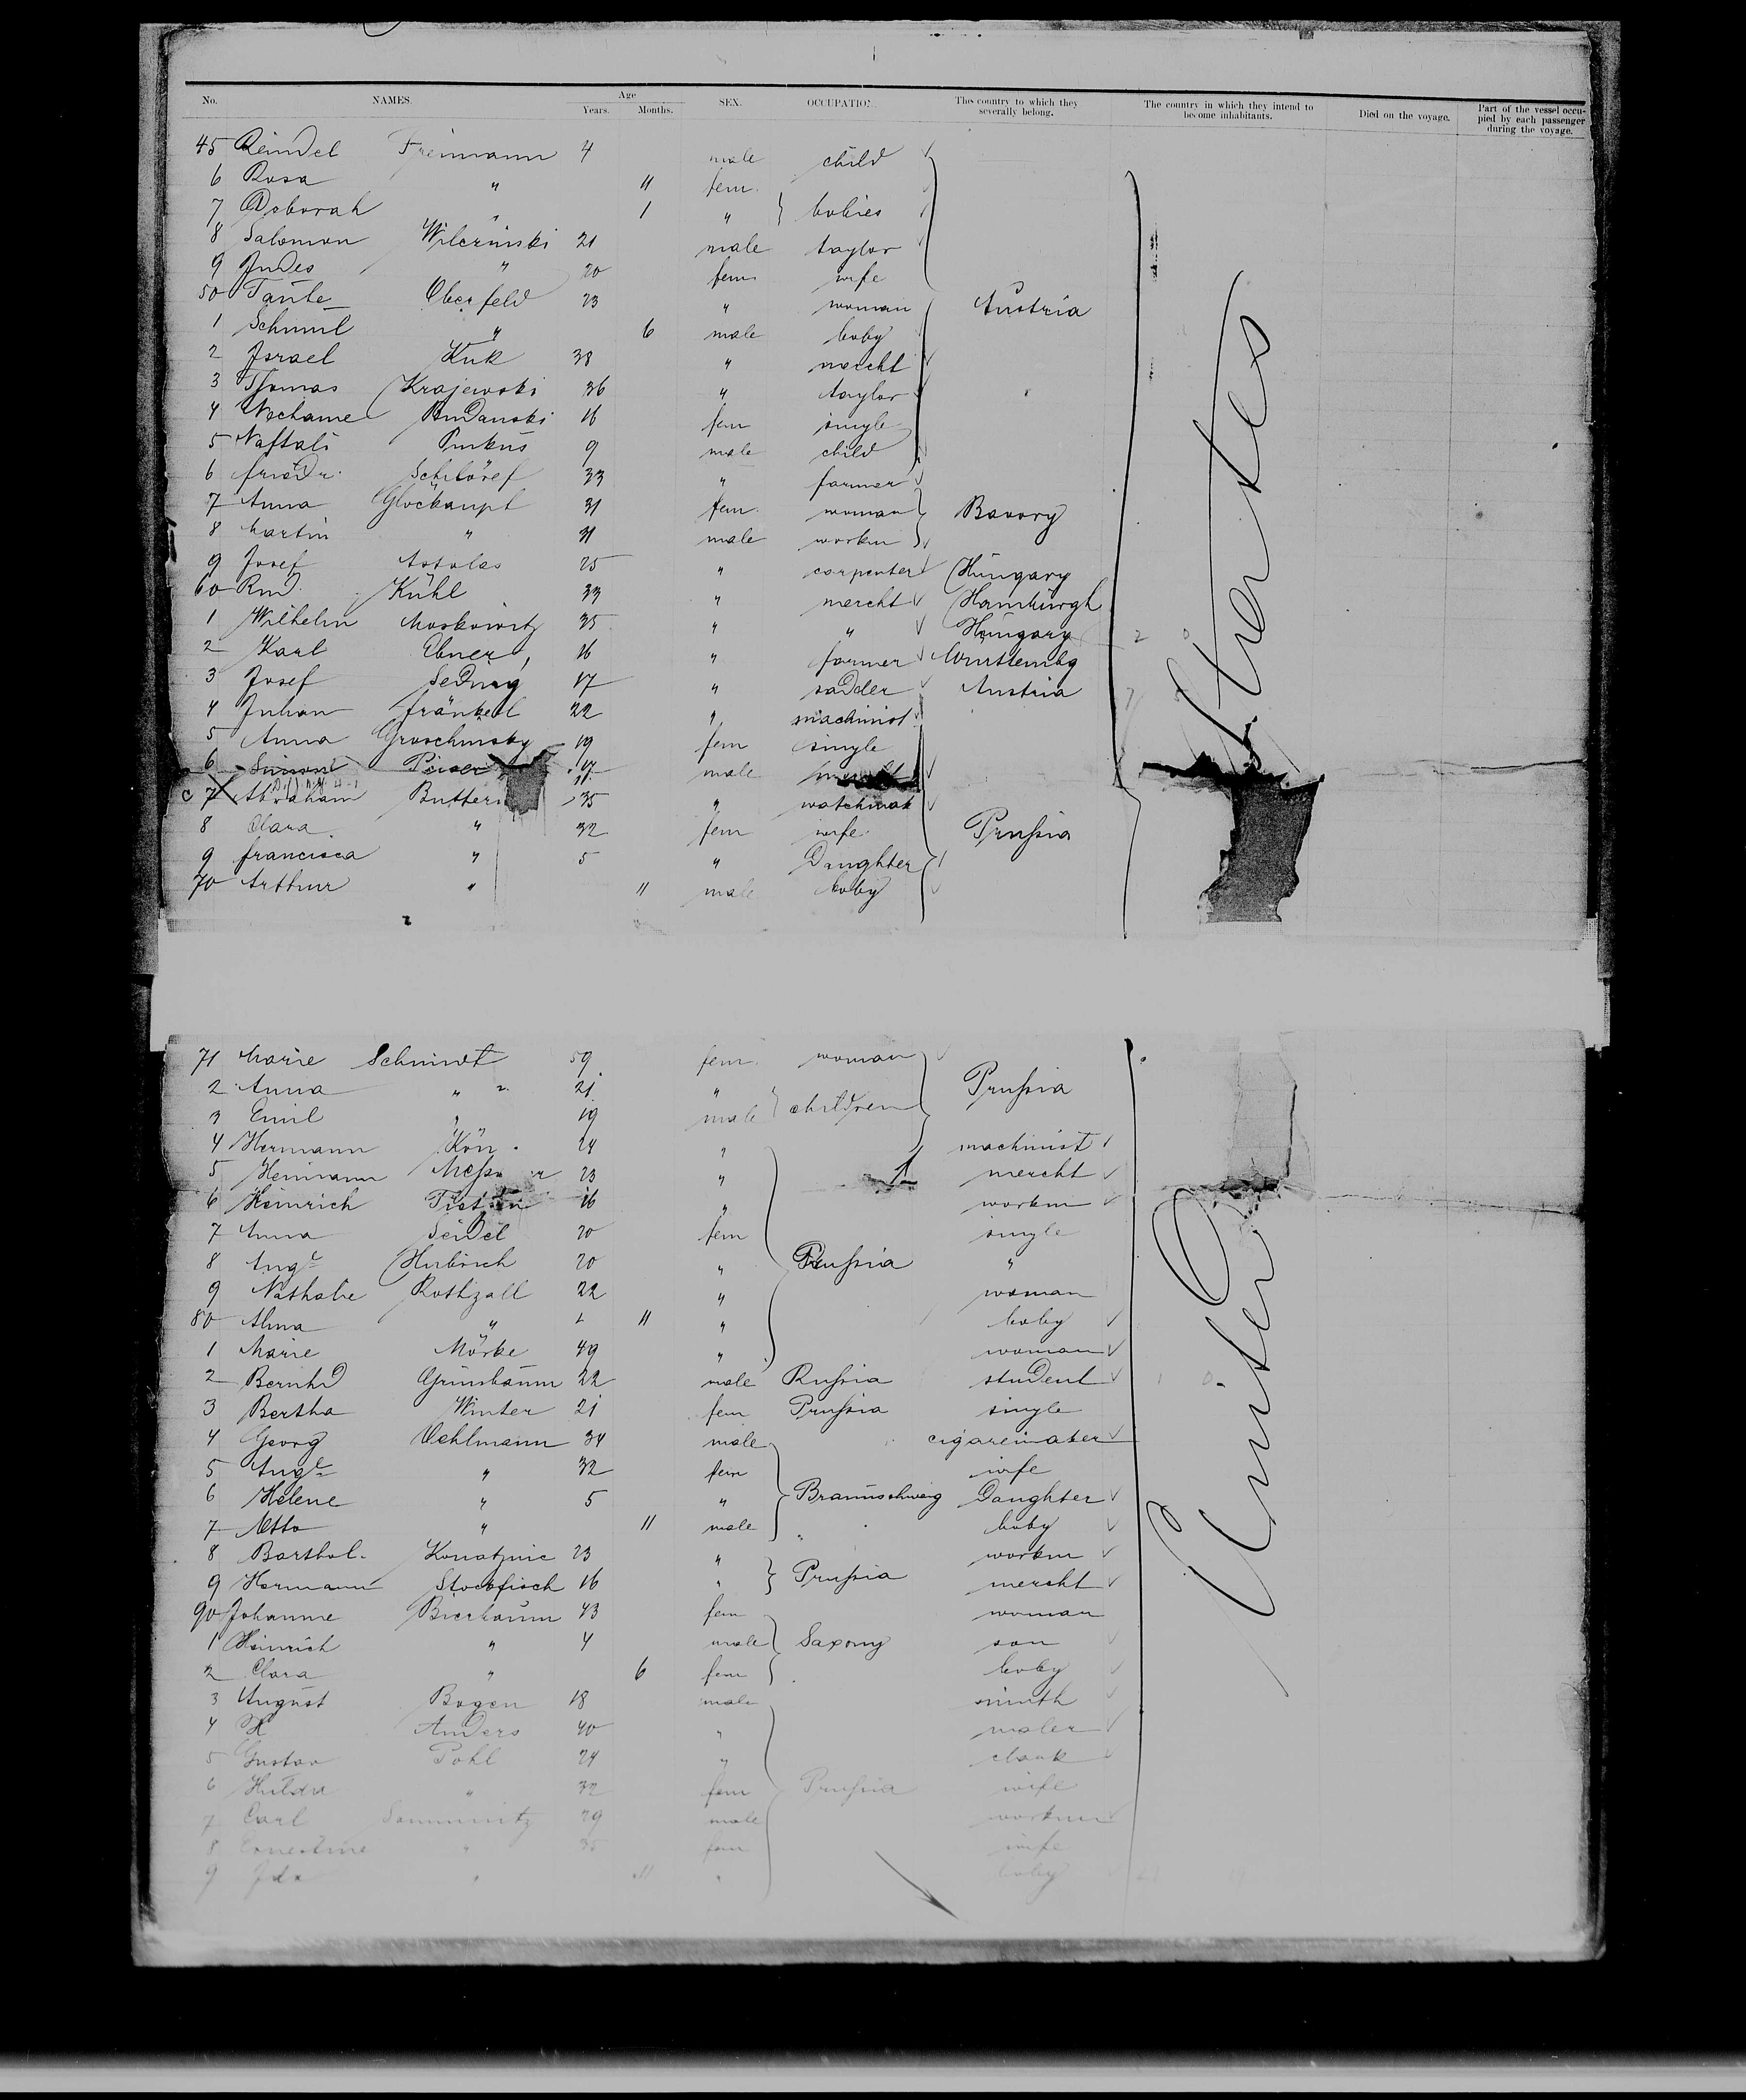 No. NAMES. Age Years. Months. SEX. OCCUPATION. The country to which they severally belong. The country in which they intend to become inhabitants. Died on the voyage. Part of the vessel occupied by each passenger during the voyage.
45 Reindel Freimann 4 male child
6 Rosa " 11 fem.
7 Deborah " 1 " babies
8 Salomon Wilczinski 21 male taylor
9 Judes " 20 fem wife
50 Taube Oberfeld 23 " woman Austria
1 Schmul " 6 male baby
2 Israel Kuk 38 " mercht
3 Thomas Krajewski 36 " taylor
4 Nechame Budanski 16 fem single
5 Naftali Pinkus 9 male child
6 Friedr. 33 " farmer
7 Anna Glockaupt 31 fem. woman Bavory
8 Martin " 31 male workm
9 Josef 25 " carpenter Hungary
60 Rud. Kühl 33 " mercht Hamburgh
1 Wilhelm Moskowitz 35 " " Hungary
2 Karl Ebner 16 " farmer Württembg
3 Josef 17 " sadder Austria
4 Julian Fränkel 22 " machinist
5 Anna Groschinsky 19 fem single
6 male
c 7 Abraham 35 " watchmak
8 Clara " 32 fem wife Prussia
9 Francisca " 5 " Daughter
70 Arthur " 11 male baby
States
71 Marie Schmidt 59 fem. woman
2 Anna " 21 " children Prussia
3 Emil " 19 male
4 Hermann 24 " machinist
5 Heimann 23 " mercht
6 Heinrich 16 " workm
7 Anna Seidel 20 fem single
8 Augte Hirbisch 20 " Prussia "
9 Nathalie Rothzall 22 " woman
80 Alma " 11 " baby
1 Marie Mörke 49 " woman
2 Bernhd Grünbaum 22 male Russia student
3 Bertha Winter 21 fem Prussia single
4 Georg Oehlmann 34 male cigaremaker
5 Augte " 32 fem wife
6 Helene " 5 " Braunschweig Daughter
7 Otto " 11 male " baby
8 Barthol. 23 " workm
9 Hermann Stockfisch 16 " Prussia mercht
90 Johanne Bierbaum 43 fem woman
1 Heinrich " 4 male Saxony son
2 Clara " 6 fem baby
3 August Bogen 18 male smith
4 H Anders 40 " maler
5 Gustav Pohl 24 " clark
6 Hulda " 32 fem Prussia wife
7 Carl 29 male workm
8 Ernestine " 35 fem wife
9 Ida " 11 " baby
United